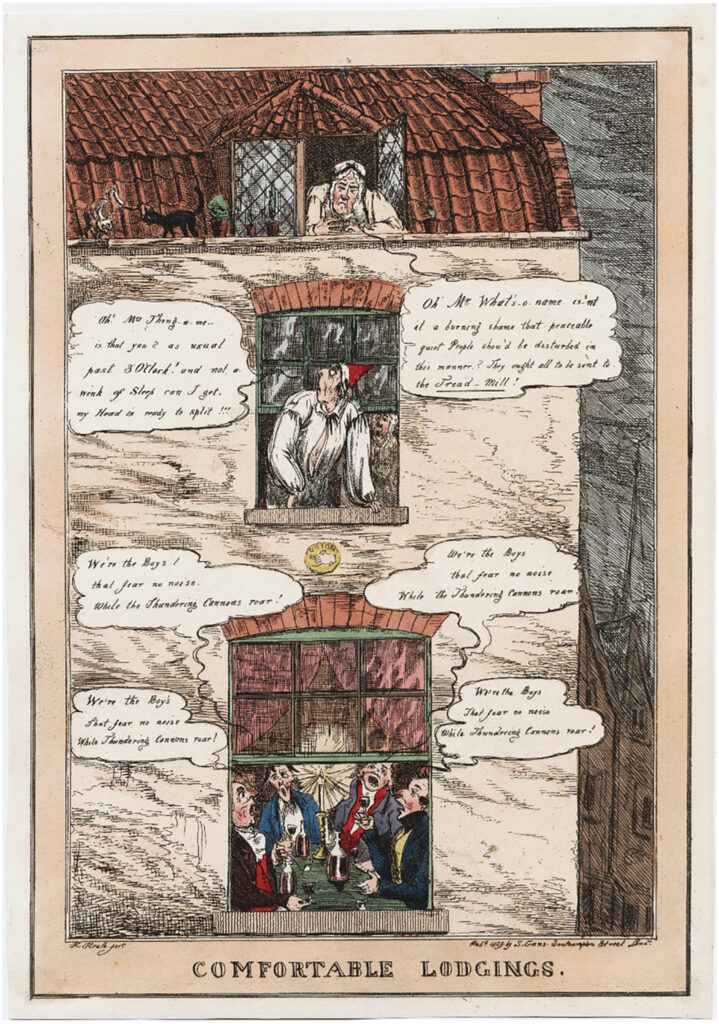 Oh! Mrs Thing-a-me..
is that you? as usual
past 3 O'Clock! and not a
wink of Sleep can I get,
my Head is ready to split!!!
Oh Mr. What's-o-name is'nt
it a burning shame that peaceable
quiet People shou'd be disturbed in
this manner? They ought all to be sent to
the Tread-Mill!
UNION
We're the Boys!
that fear no noise.
While the Thundering Cannons roar!
We're the Boys
that fear no noise
While the Thundering Cannons roar.
We're the Boys
That fear no noise
While Thundering Cannons roar!
We're the Boys
That fear no noise
While Thundering Cannons roar!
H. Heath fect
Pubd. 1829 by S. Gans. Southampton Street
COMFORTABLE LODGINGS.